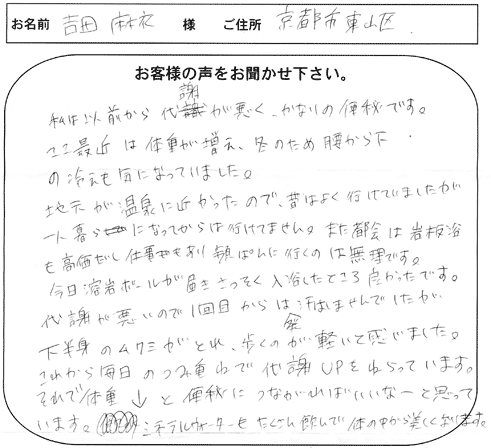 お名前 吉田 麻衣 様 ご住所 京都市東山区.
お客様の声をお聞かせ下さい。
私は以前から代謝が悪く、かなりの便秘です。
ここ最近は体重が増え、冬のため腰から下
の冷えも気になっていました。
地元が温泉に近かったので、昔はよく行けていましたが
一人暮らしになってからは行けてません。また都会は岩板浴
も高価だし仕事もあり頻ぱんに行くのは無理です。
今日溶岩ボールが届きさっそく入浴したところ良かったです。
代謝が悪いので1回目からは汗はでませんでしたが
下半身のムクミがとれ、歩くのが軽いと感じました。
これから毎日のつみ重ねで代謝UPをねらっています。
それで体重↓と便秘につながればいいなーと思って
います。ミネラルウォーターもたくさん飲んで体の中から美しくなります。